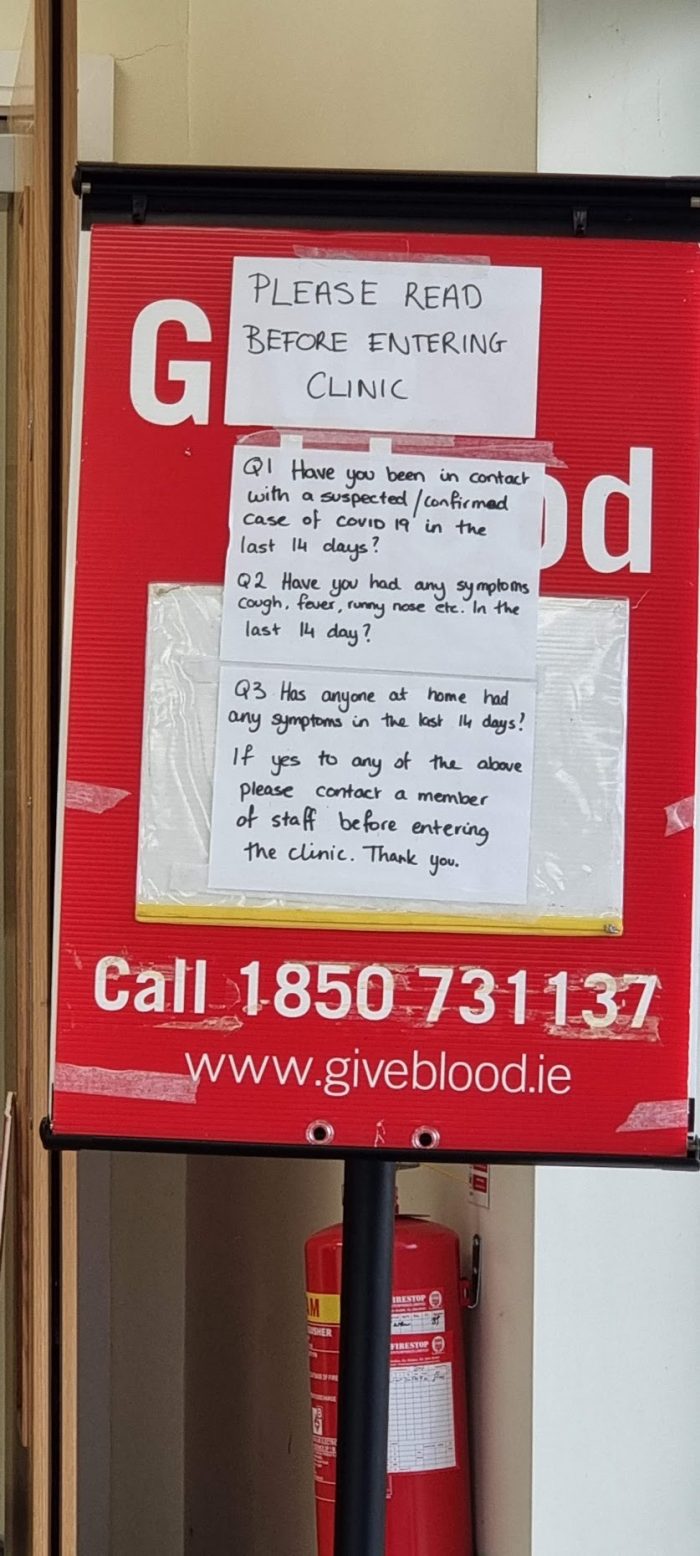 PLEASE READ
BEFORE ENTERING
CLINIC
G
od
Q1 Have you been in contact
with a suspected/confirmed
case of COVID 19 in the
last 14 days?
Q2 Have you had any symptoms
cough, fever, runny nose etc. In the
last 14 day?
Q3 Has anyone at home had
any symptoms in the last 14 days?
If yes to any of the above
please contact a member
of staff before entering
the clinic. Thank you.
Call 1850 731137
www.giveblood.ie
AM
FIRESTOP
FIRESTOP